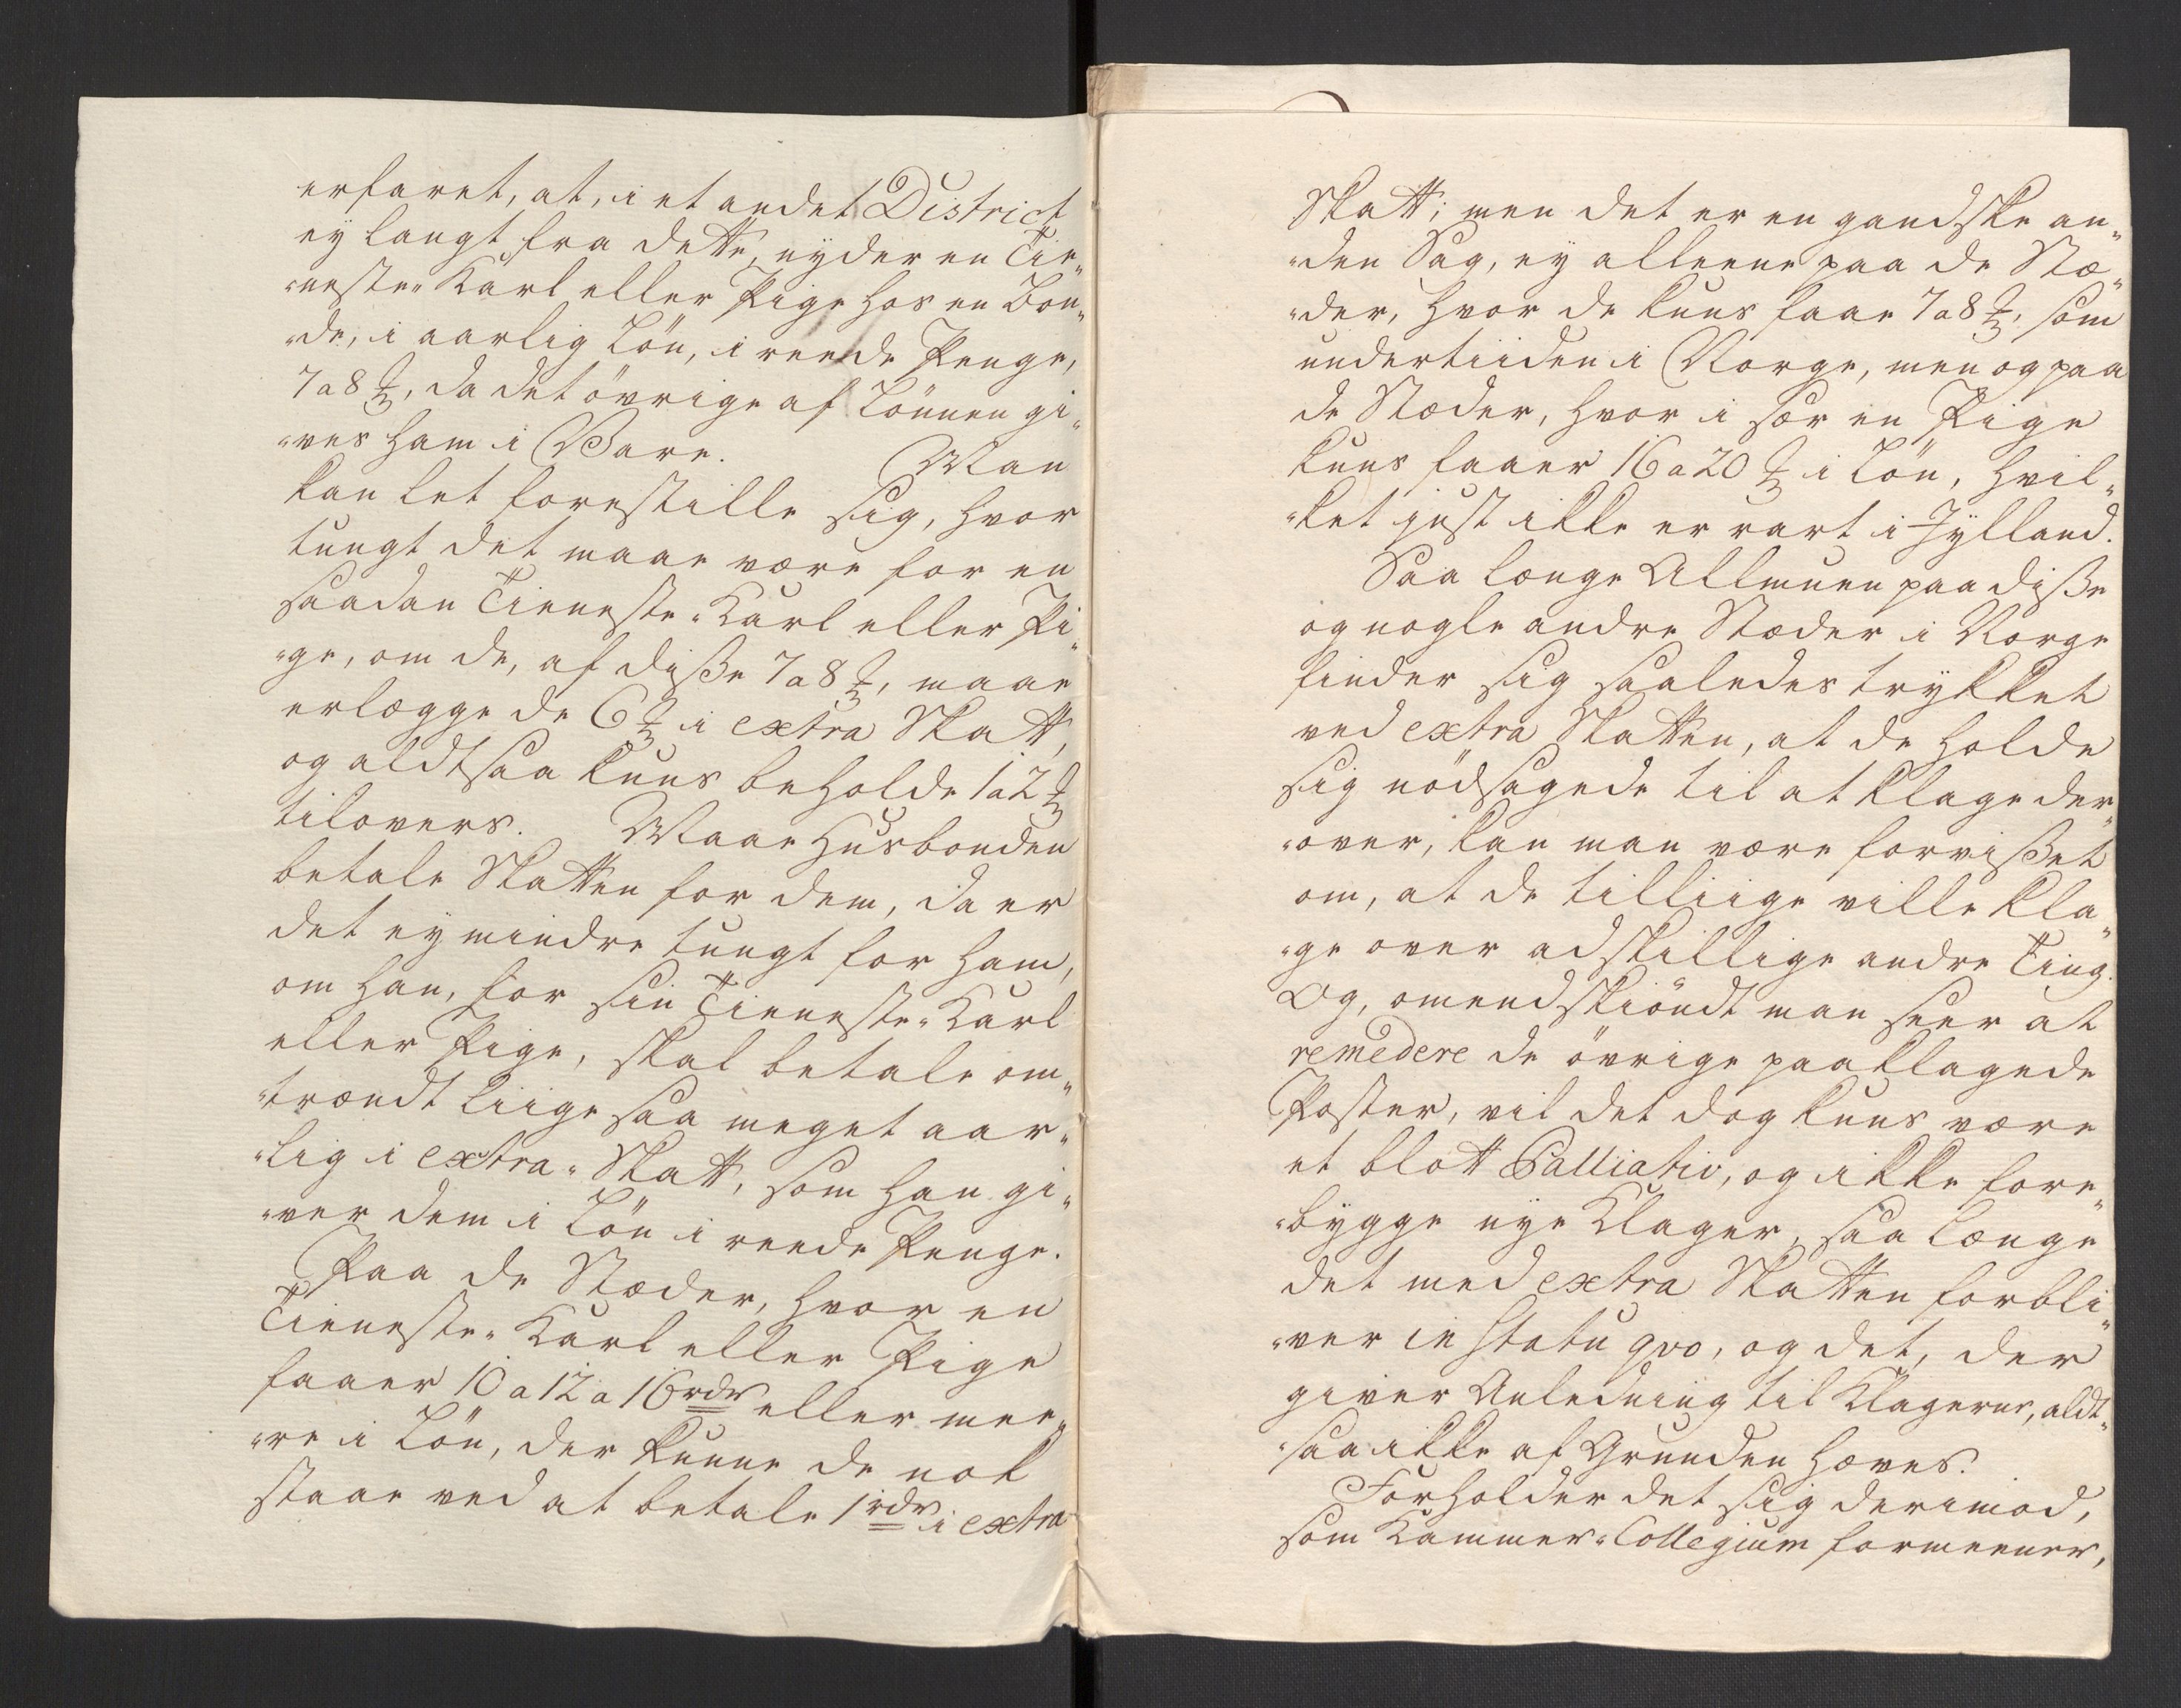 erfaret, at, i et andet District
ey langt fra dette, nyder en Tie„
„neste„ Karl eller Pige hos en Bon„
„de, i aarlig Lön, i reede Penge,
7 a 8 ₰, da det övrige af Lönnen gi„
„ves ham i Vare. Man
kan let forestille sig, hvor
tungt det maae være for en
saadan Tieneste„ Karl eller Pi„
„ge, om de, af disse 7 a 8 ₰, maae
erlægge de 6 ₰ i extra Skatt,
og aldtsaa kuns beholde 1 a 2 ₰
tilovers. Maae Husbonden
betale Skatten for dem, da er
det ey mindre tungt for ham,
om han, for sin Tieneste„ Karl
eller Pige, skal betale om„
„trændt liige saa meget aar„
„lig i extra„ Skatt, som han gi„
„ver dem i Lön i reede Penge.
Paa de Stæder, hvor en
Tieneste„ Karl eller Pige
faaer 10 a 12 a 16 rdr eller mee„
„re i Lön, der kunne de nok
staae ved at betale 1 rdr i extra
Skatt; men det er en gandske an„
„den Sag, ey alleene paa de Stæ„
„der, hvor de kuns faae 7 a 8 ₰, som
undertiiden i Norge, men og paa
de Stæder, hvor i sær en Pige
kuns faaer 16 a 20 ₰ i Lön, hvil„
„ket just ikke er rart i Jylland.
Saa længe Allmuen paa disse
og nogle andre Stæder i Norge
finder sig saaledes trykket
ved extra Skatten, at de holde
sig nödsagede til at klage der„
„over, kan man være forvisset
om, at de tilliige ville kla„
„ge over adskillige andre Ting.
Og, omendskiöndt man seer at
remedere de övrige paaklagede
Poster, vil det dog kuns være
et blott Palliativ, og ikke fore„
„bygge nye Klager, saa længe
det med extra Skatten forbli„
„ver in statu qvo, og det, der
giver Anledning til Klagerne, aldt„
„saa ikke af Grunden hæves.
Forholder det sig derimod,
som Kammer„ Collegium formeener,